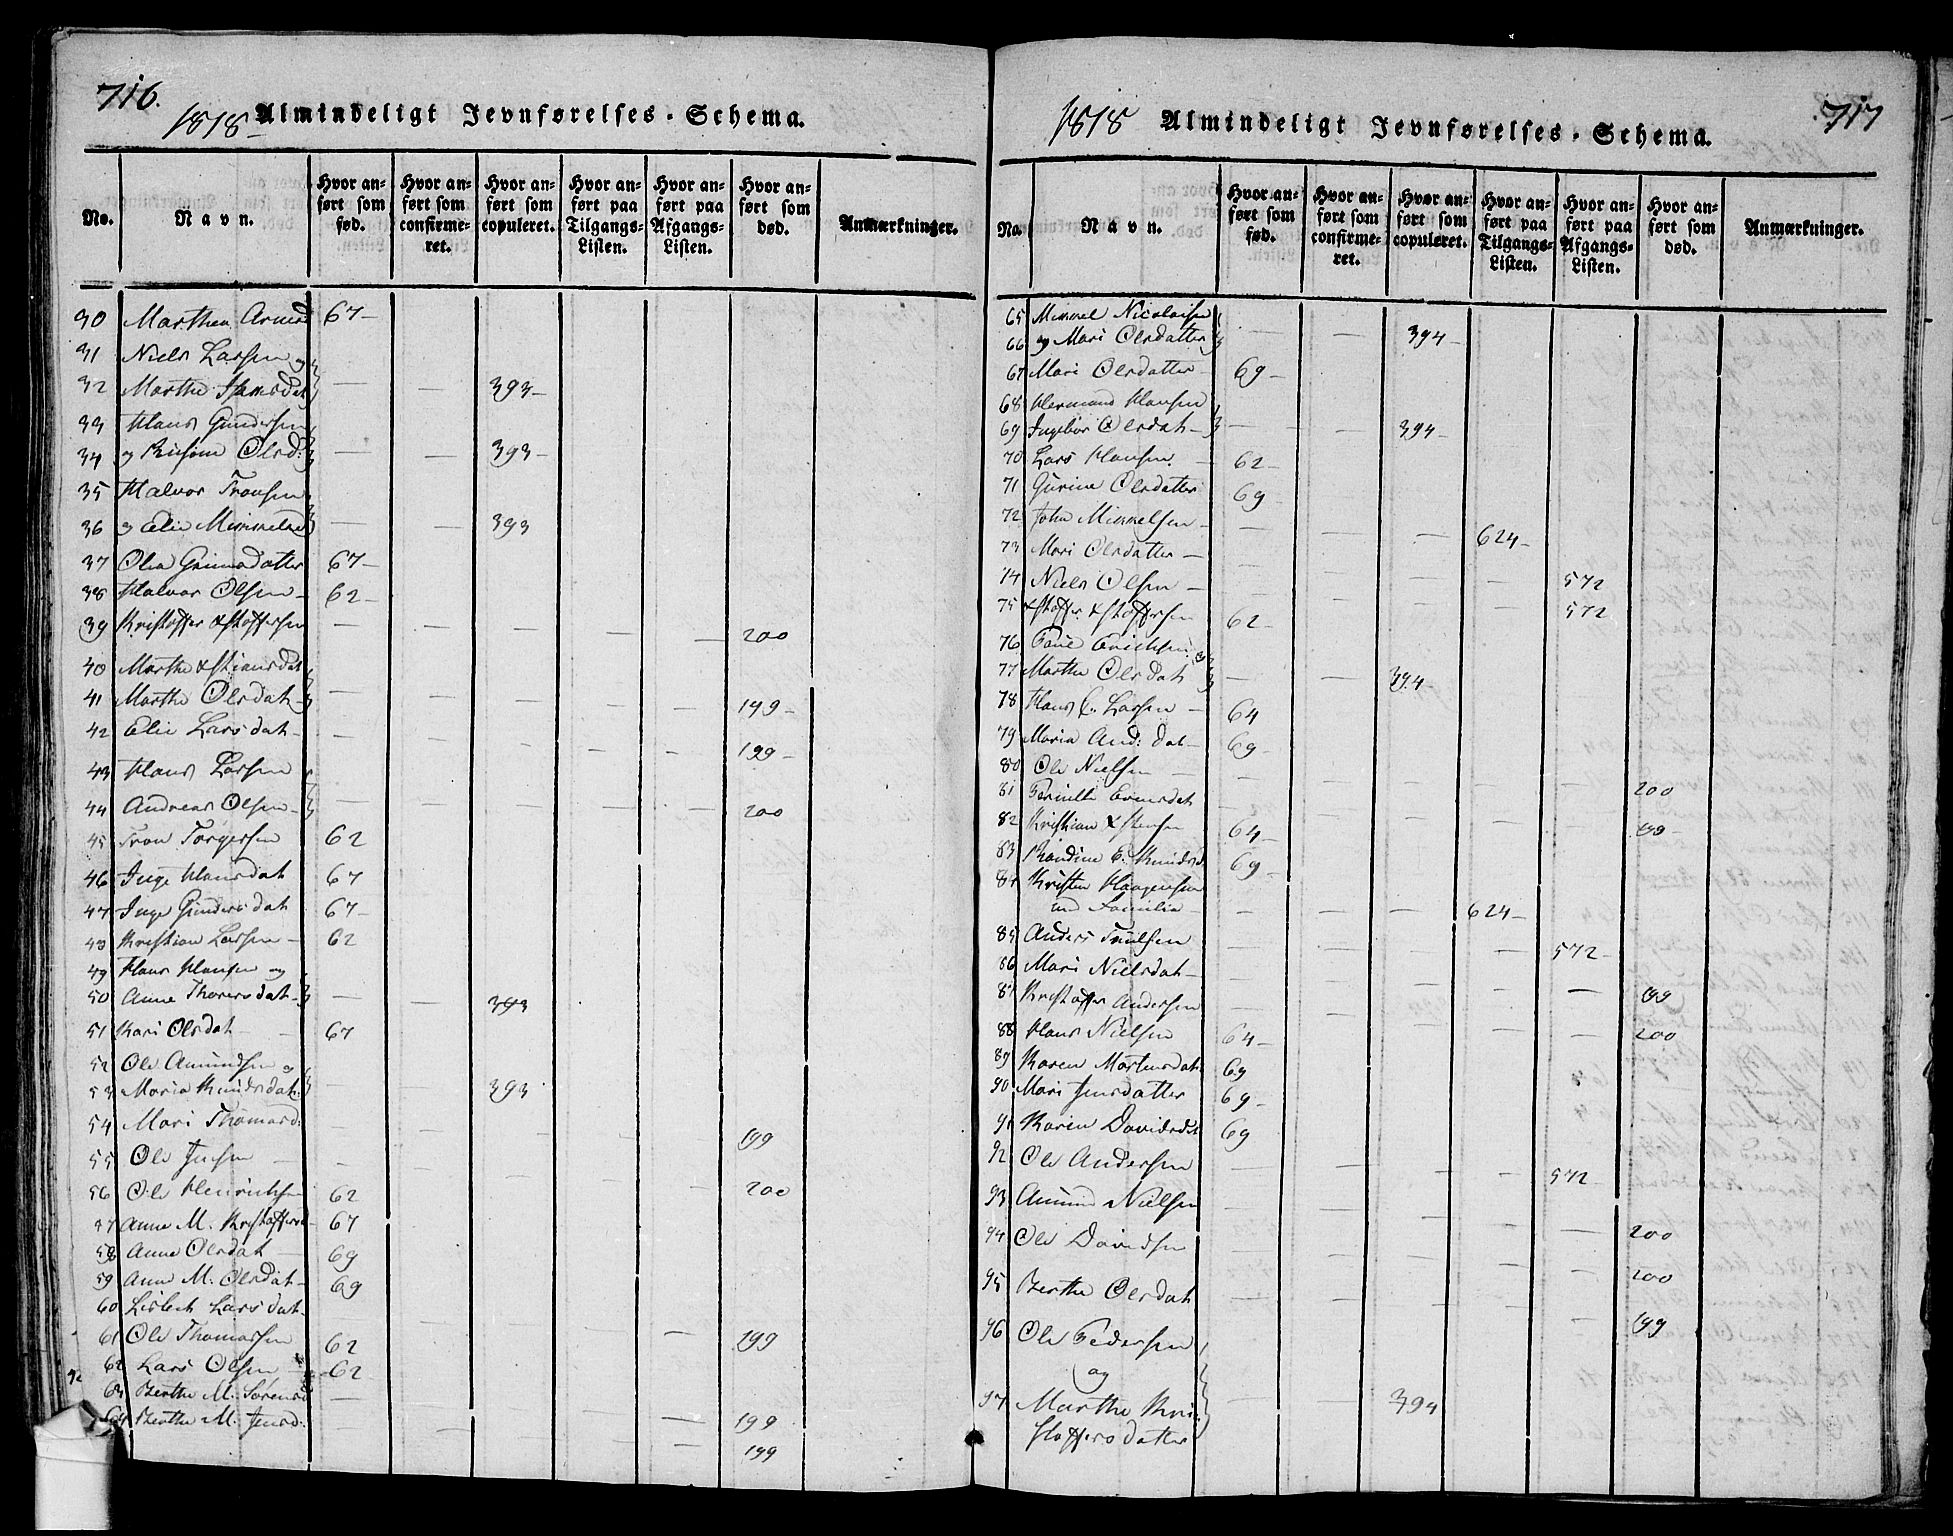 716.
1818 Almindeligt Jevnførelses-Schema.
No. Navn. Hvor anført som fød. Hvor anført som confirmeret. Hvor anført som copuleret. Hvor anført paa Tilgangs-Listen. Hvor anført paa Afgangs-Listen. Hvor anført som død. Anmærkninger.
30 Marthea 67-
31 Niels Larsen og
32 Marthe Hansdat — — 393-
33 Hans Gundersen
34 og Olsd: — — 393-
35 Halvor Tronsen
36 og Elie Mimmelsd — — 393
37 Olea Gunnersdatter 67-
38 Halvor Olsen- 62-
39 Kristoffer Xstoffersen — — — — — 200
40 Marthe Xstiansdat
41 Marthe Olsdat- — — — — — 199-
42 Elie Larsdat- — — — — — 199-
43 Hans Larsen
44 Andreas Olsen- — — — — — 200
45 Tron Torgersen 62
46 Inge Hansdat 67
47 Inge Gundersdat 67-
48 Kristian Larsen- 62
49 Hans Hansen og
50 Anne Thoresdat- — — 393
51 Kari Olsdat- 67
52 Ole Amundsen og
53 Maria Knudsdat. — — 393
54 Mari Thomasd: — — 199
55 Ole Jensen — — 200
56 Ole Henrichsen 62
57 Anne M. Kristoffersd- 67
58 Anne Olsdat 69
59 Anne M. Olsdat- 69
60 Lisbeth Larsdat- — — — 199
61 Ole Thomassen 62
62 Lars Olsen 62
63 Berthe M. Sørensd — — — 199
64 Berthe M. Jensd: — 199
1818 Almindeligt Jevnførelses-Schema. 717
No. Navn. Hvor anført som fød. Hvor anført som confirmeret. Hvor anført som copuleret. Hvor anført paa Tilgangs-Listen. Hvor anført paa Afgangs-Listen. Hvor anført som død. Anmærkninger.
65 Mimmel Nicolaisen
66 og Mari Olsdatter — — 394-
67 Mari Olsdatter- 69-
68 Hermand Hansen
69 Ingebor Olsdat- — — 394-
70 Lars Hansen 62-
71 Gurine Olsdatter 69-
72 John Mimmelsen- — — — 624-
73 Mari Olsdatter — — — — 572
74 Niels Olsen- — — — 572
75 Xstoffer Xstoffersen 62-
76 Poul Erichsen og
77 Marthe Olsdat — — 394-
78 Hans C. Larsen- 64
79 Maria And: dat- 69-
80 Ole Nielsen — — — — — 200
81 Pernille Evensdat — — — — 199
82 Kristian Xstensen 64-
83 Randine E. Knudsd 69-
84 Kristen Haagensen
med Familie- — — — 624-
85 Anders Truulsen — — — 572-
86 Mari Nielsdat- — — — 199
87 Kristoffer Andersen — — — 200
88 Hans Nielsen 64-
89 Karen Mortensdat. 69
90 Mari Jensdatter 69-
91 Karen Davidsdat 69
92 Ole Andersen — — — — 572-
93 Amund Nielsen — — — — — 200
94 Ole Davidsen — — — — — 200
95 Berthe Olsdat — — — — 199
96 Ole Pedersen
og
97 Marthe Kri-
stoffersdatter — — 394